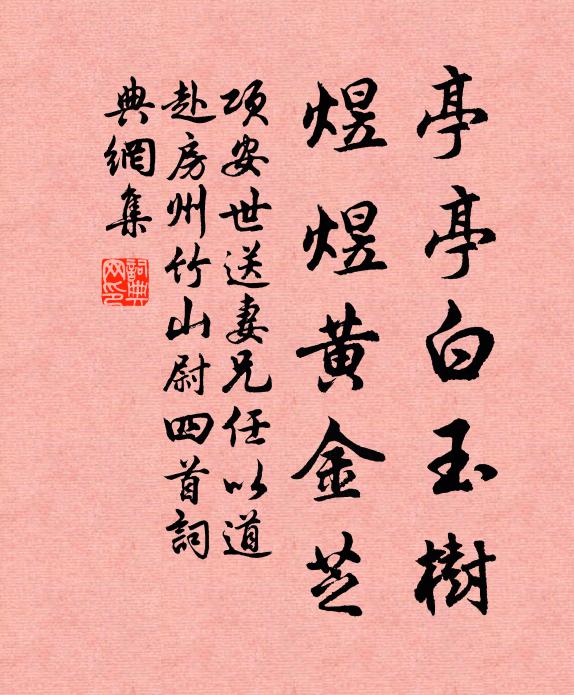 亭亭白玉樹
煜煜黃金芝
項安世送妻兄任以道
赴房州竹山尉四首詞
典網集
詞典網印